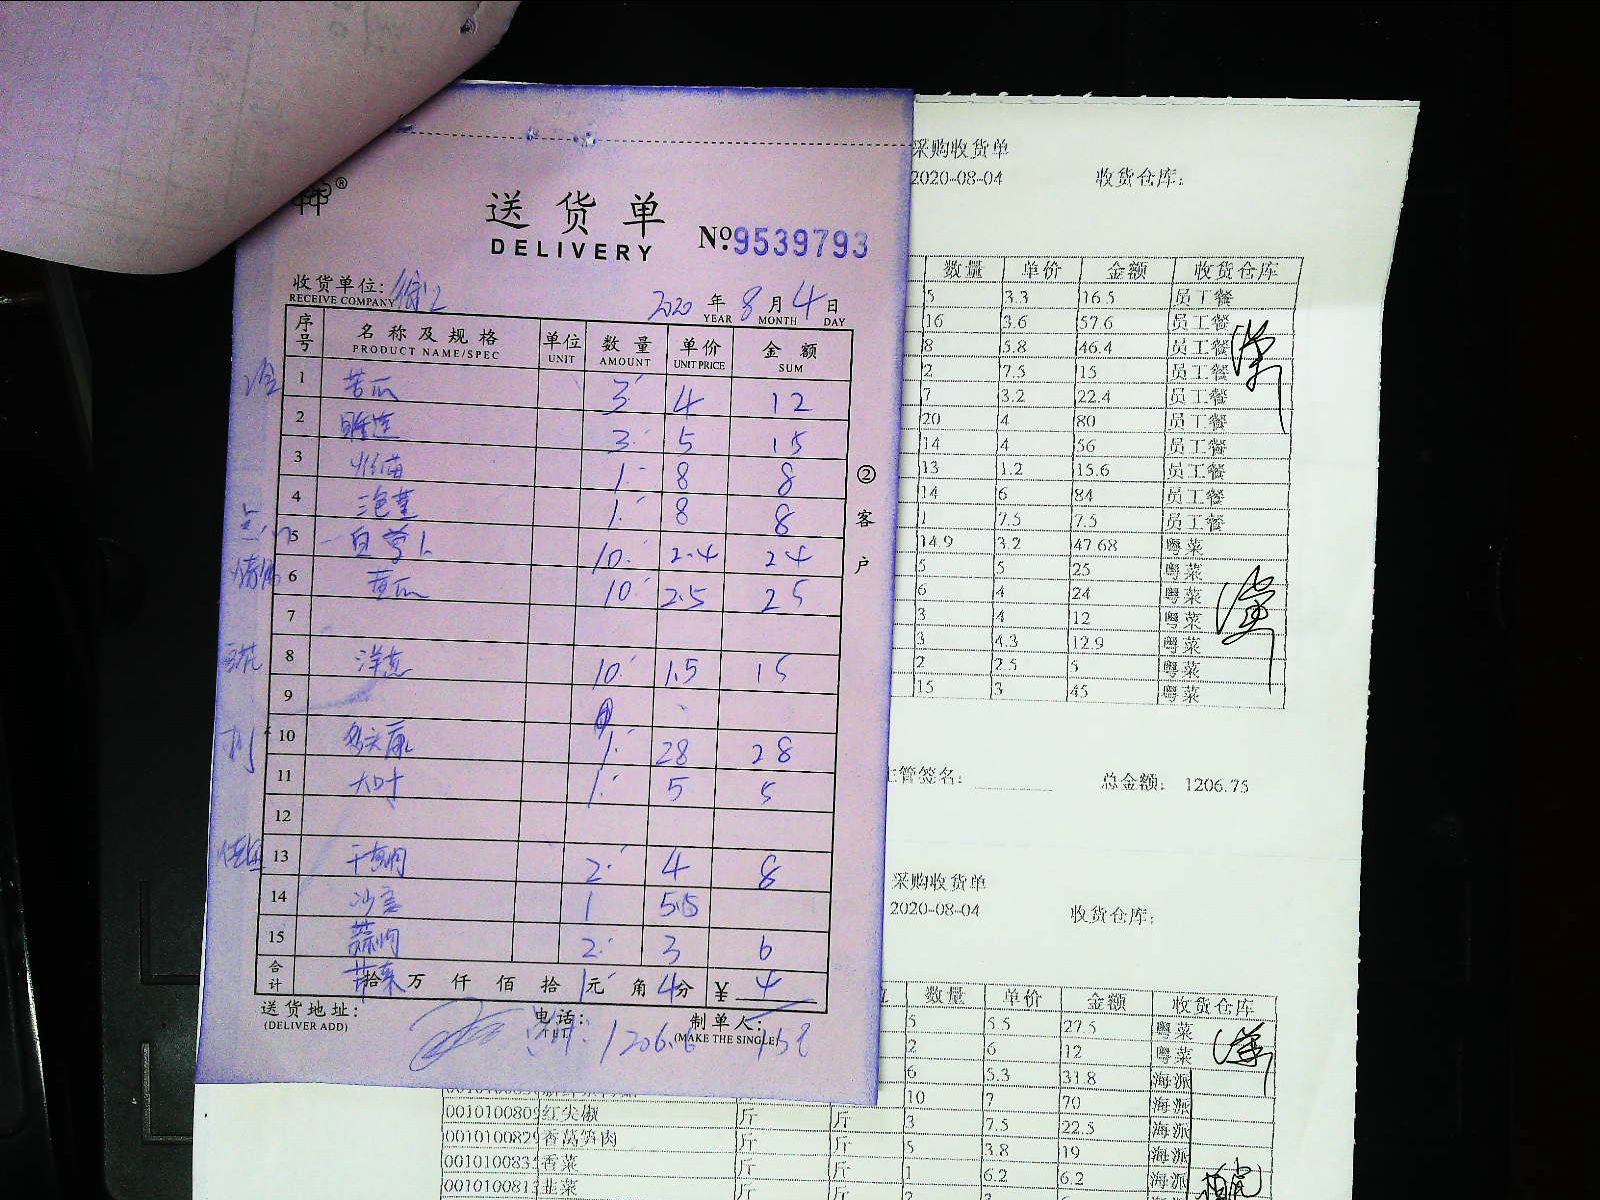 送货单
DELIVERY
No.9539793
收货单位:
RECEIVE COMPANY
2020 年 8 月 4 日
YEAR MONTH DAY
序号 名称及规格 单位 数量 单价 金额
PRODUCT NAME/SPEC UNIT AMOUNT UNIT PRICE SUM
1 苦瓜 3 4 12
2 3 5 15
3 1 8 8
4 1 8 8
5 白萝卜 10 2.4 24
6 黄瓜 10 2.5 25
7
8 洋葱 10 1.5 15
9
10 1 28 28
11 大叶 1 5 5
12
13 2 4 8
14 1 5.5
15 2 3 6
合计 拾 万 仟 佰 拾 1元 角 4分 ¥ 4
②客户
送货地址:
(DELIVER ADD)
电话:
制单人:
(MAKE THE SINGLE)
采购收货单
2020-08-04 收货仓库:
数量 单价 金额 收货仓库
5 3.3 16.5 员工餐
16 3.6 57.6 员工餐
8 5.8 46.4 员工餐
2 7.5 15 员工餐
7 3.2 22.4 员工餐
20 4 80 员工餐
14 4 56 员工餐
13 1.2 15.6 员工餐
14 6 84 员工餐
1 7.5 7.5 员工餐
14.9 3.2 47.68 粤菜
5 5 25 粤菜
6 4 24 粤菜
3 4 12 粤菜
3 4.3 12.9 粤菜
2 2.5 5 粤菜
15 3 45 粤菜
主管签名: 总金额: 1206.75
采购收货单
2020-08-04 收货仓库:
数量 单价 金额 收货仓库
5 5.5 27.5 粤菜
2 6 12 粤菜
6 5.3 31.8 海派
10 7 70 海派
0010100809 红尖椒 斤 斤 3 7.5 22.5 海派
0010100829 香莴笋肉 斤 斤 5 3.8 19 海派
001010083 香菜 斤 斤 1 6.2 6.2 海派
001010081 韭菜 斤 斤